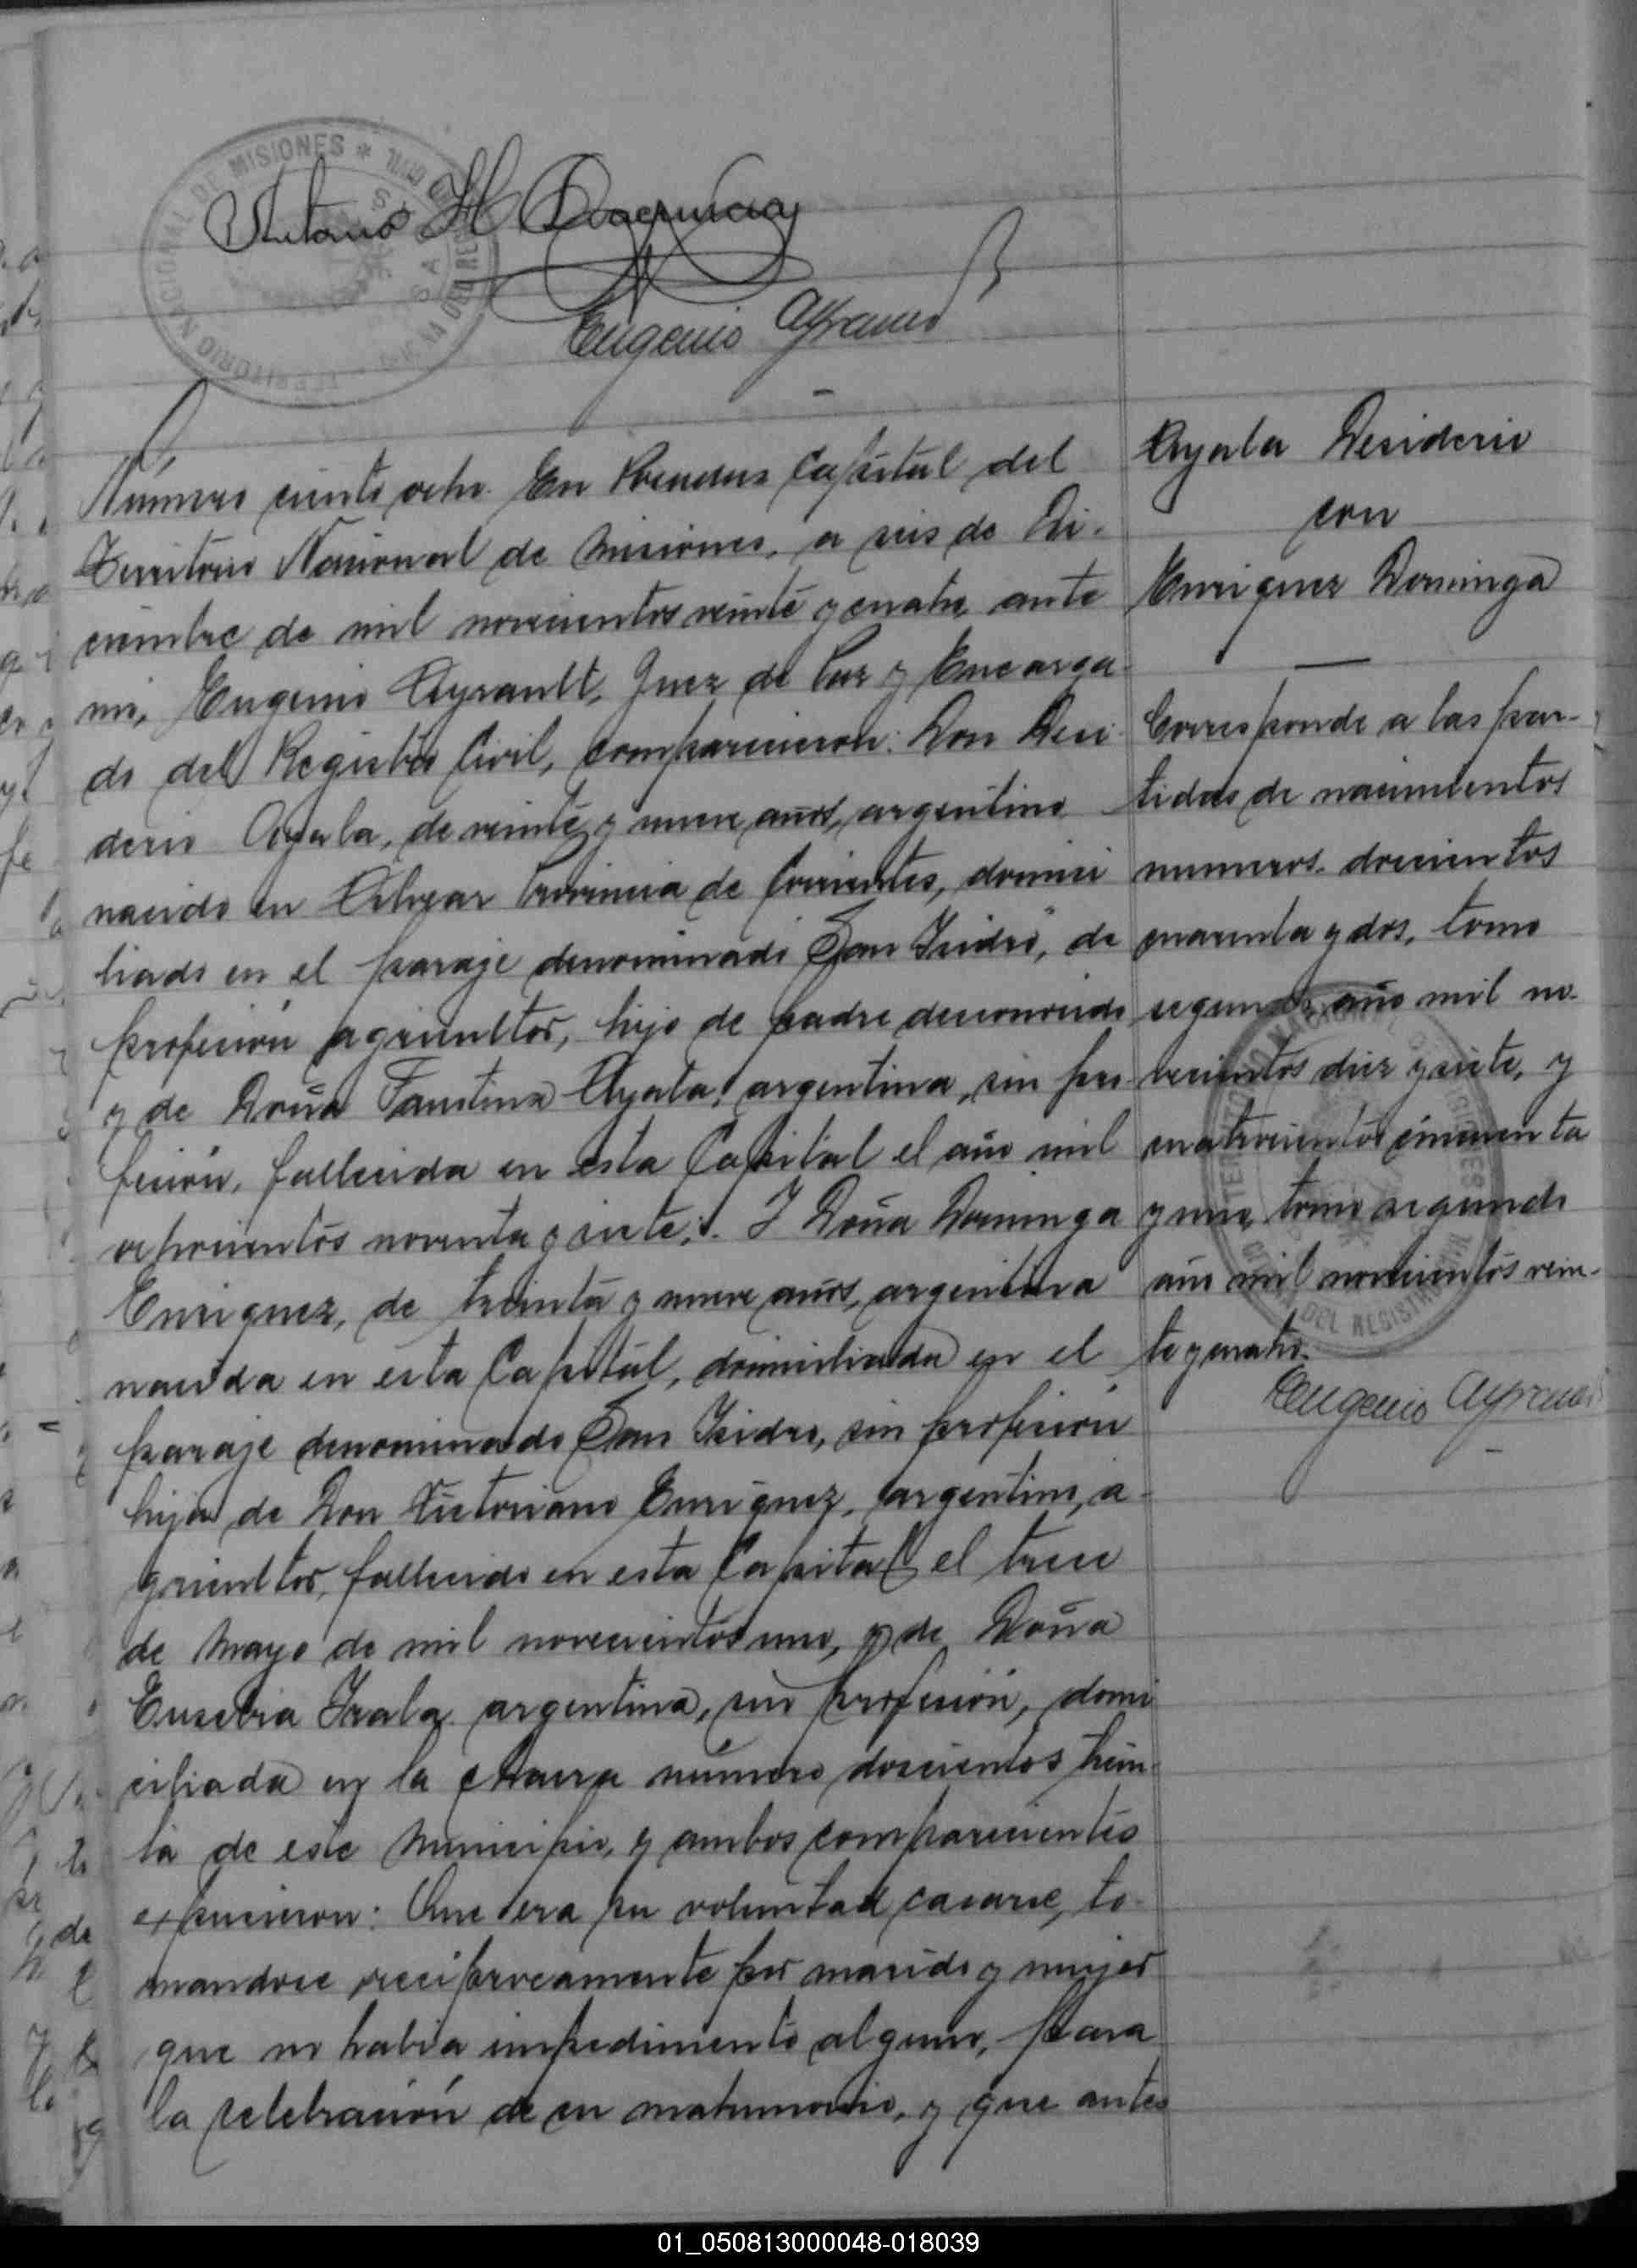 TERRITORIO NACIONAL DE MISIONES *
Antonio H
Eugenio Ayrault
Número ciento ocho. En Posadas Capital del
Territorio Nacional de Misiones, a seis de Di-
ciembre de mil novecientos veinte y cuatro, ante
mi, Eugenio Ayrault, Juez de Paz y Encarga-
do del Registro Civil, comparecieron: Don Desi-
derio Ayala, de veinte y nueve años, argentino
nacido en Alvear Provincia de Corrientes, domici
liado en el paraje denominado "San Isidro", de
profesión agricultor, hijo de padre desconocido
y de Doña Faustina Ayala, argentina, sin pro
fesión, fallecida en esta Capital el año mil
ochocientos noventa y siete;. Y Doña Dominga
Enriquez, de treinta y nueve años, argentina
nacida en esta Capital, domiciliada en el
paraje denominado San Isidro, sin profesión
hija de Don Victoriano Enriquez, argentino, a-
gricultor, fallecido en esta Capital el trece
de Mayo de mil novecientos uno, y de Doña
Eusebia Irala argentina, sin profesión, domi
ciliada en la chacra número doscientos trein-
ta de este Municipio, y ambos comparecientes
expusieron: Que era su voluntad casarse, to-
mandose reciprocamente por marido y mujer
que no habia impedimento alguno, para
la celebración de su matrimonio, y que antes
Ayala Desiderio
con
Enriquez Dominga
Corresponde a las par-
tidas de nacimientos
numeros. doscientos
cuarenta y dos, tomo
segundo, año mil no-
vecientos diez y siete, y
cuatrocientos cincuenta
y uno, tomo segundo
año mil novecientos vein-
te y cuatro.
Eugenio Ayrault
01_050813000048-018039